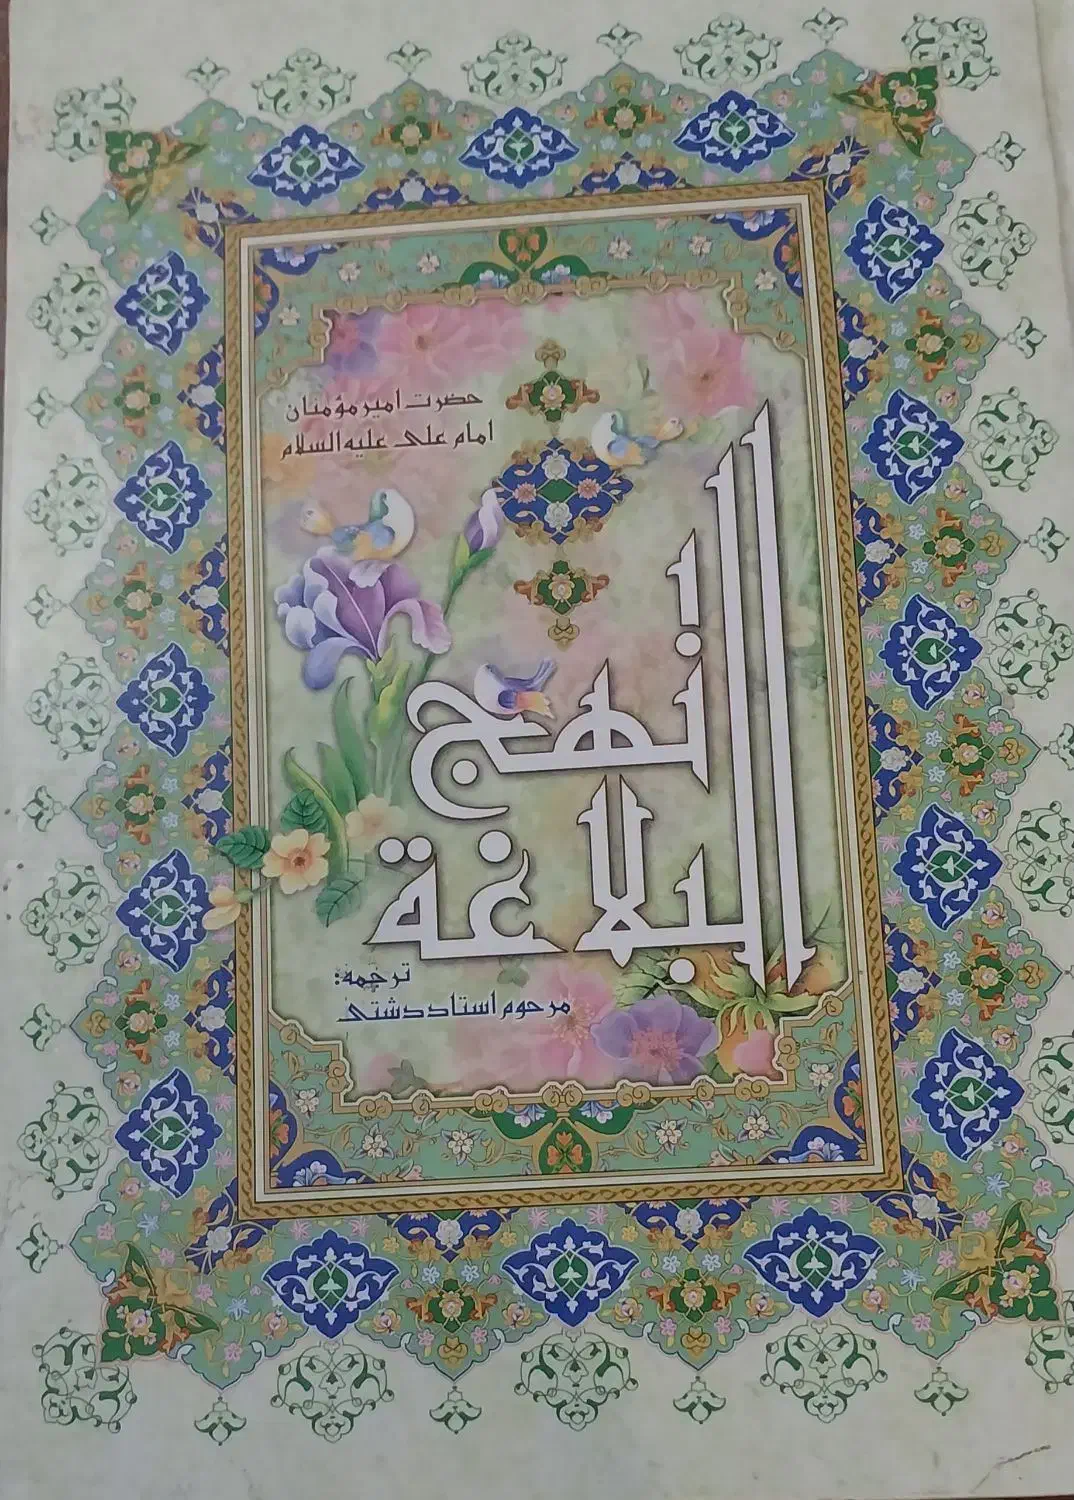 حضرت امیرمؤمنان
امام علی علیه السلام
نهج
البلاغة
ترجمه:
مرحوم استاد دشتی